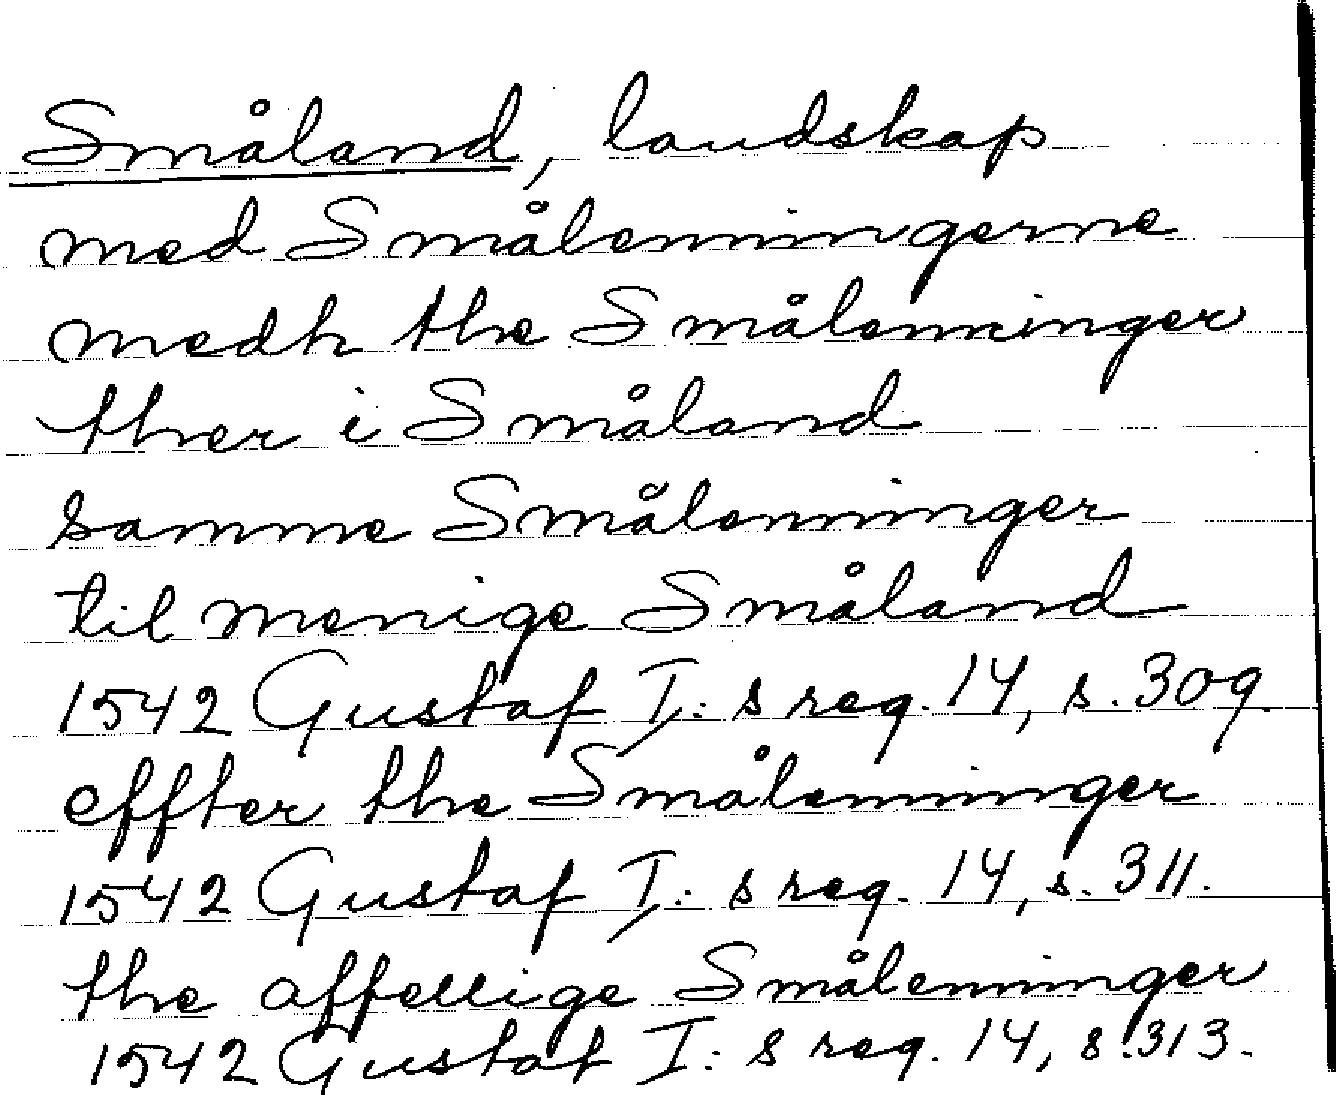 Småland, landskap
med Smålenningerne
medh the Smålenninger
ther i Småland
samme Smålenninger
til menige Småland
1542 Gustaf I:s reg. 14, s. 309.
effter the Smålenninger
1542 Gustaf I:s reg. 14, s. 311.
the affellige Smålenninger
1542 Gustaf I:s reg. 14, s. 313.